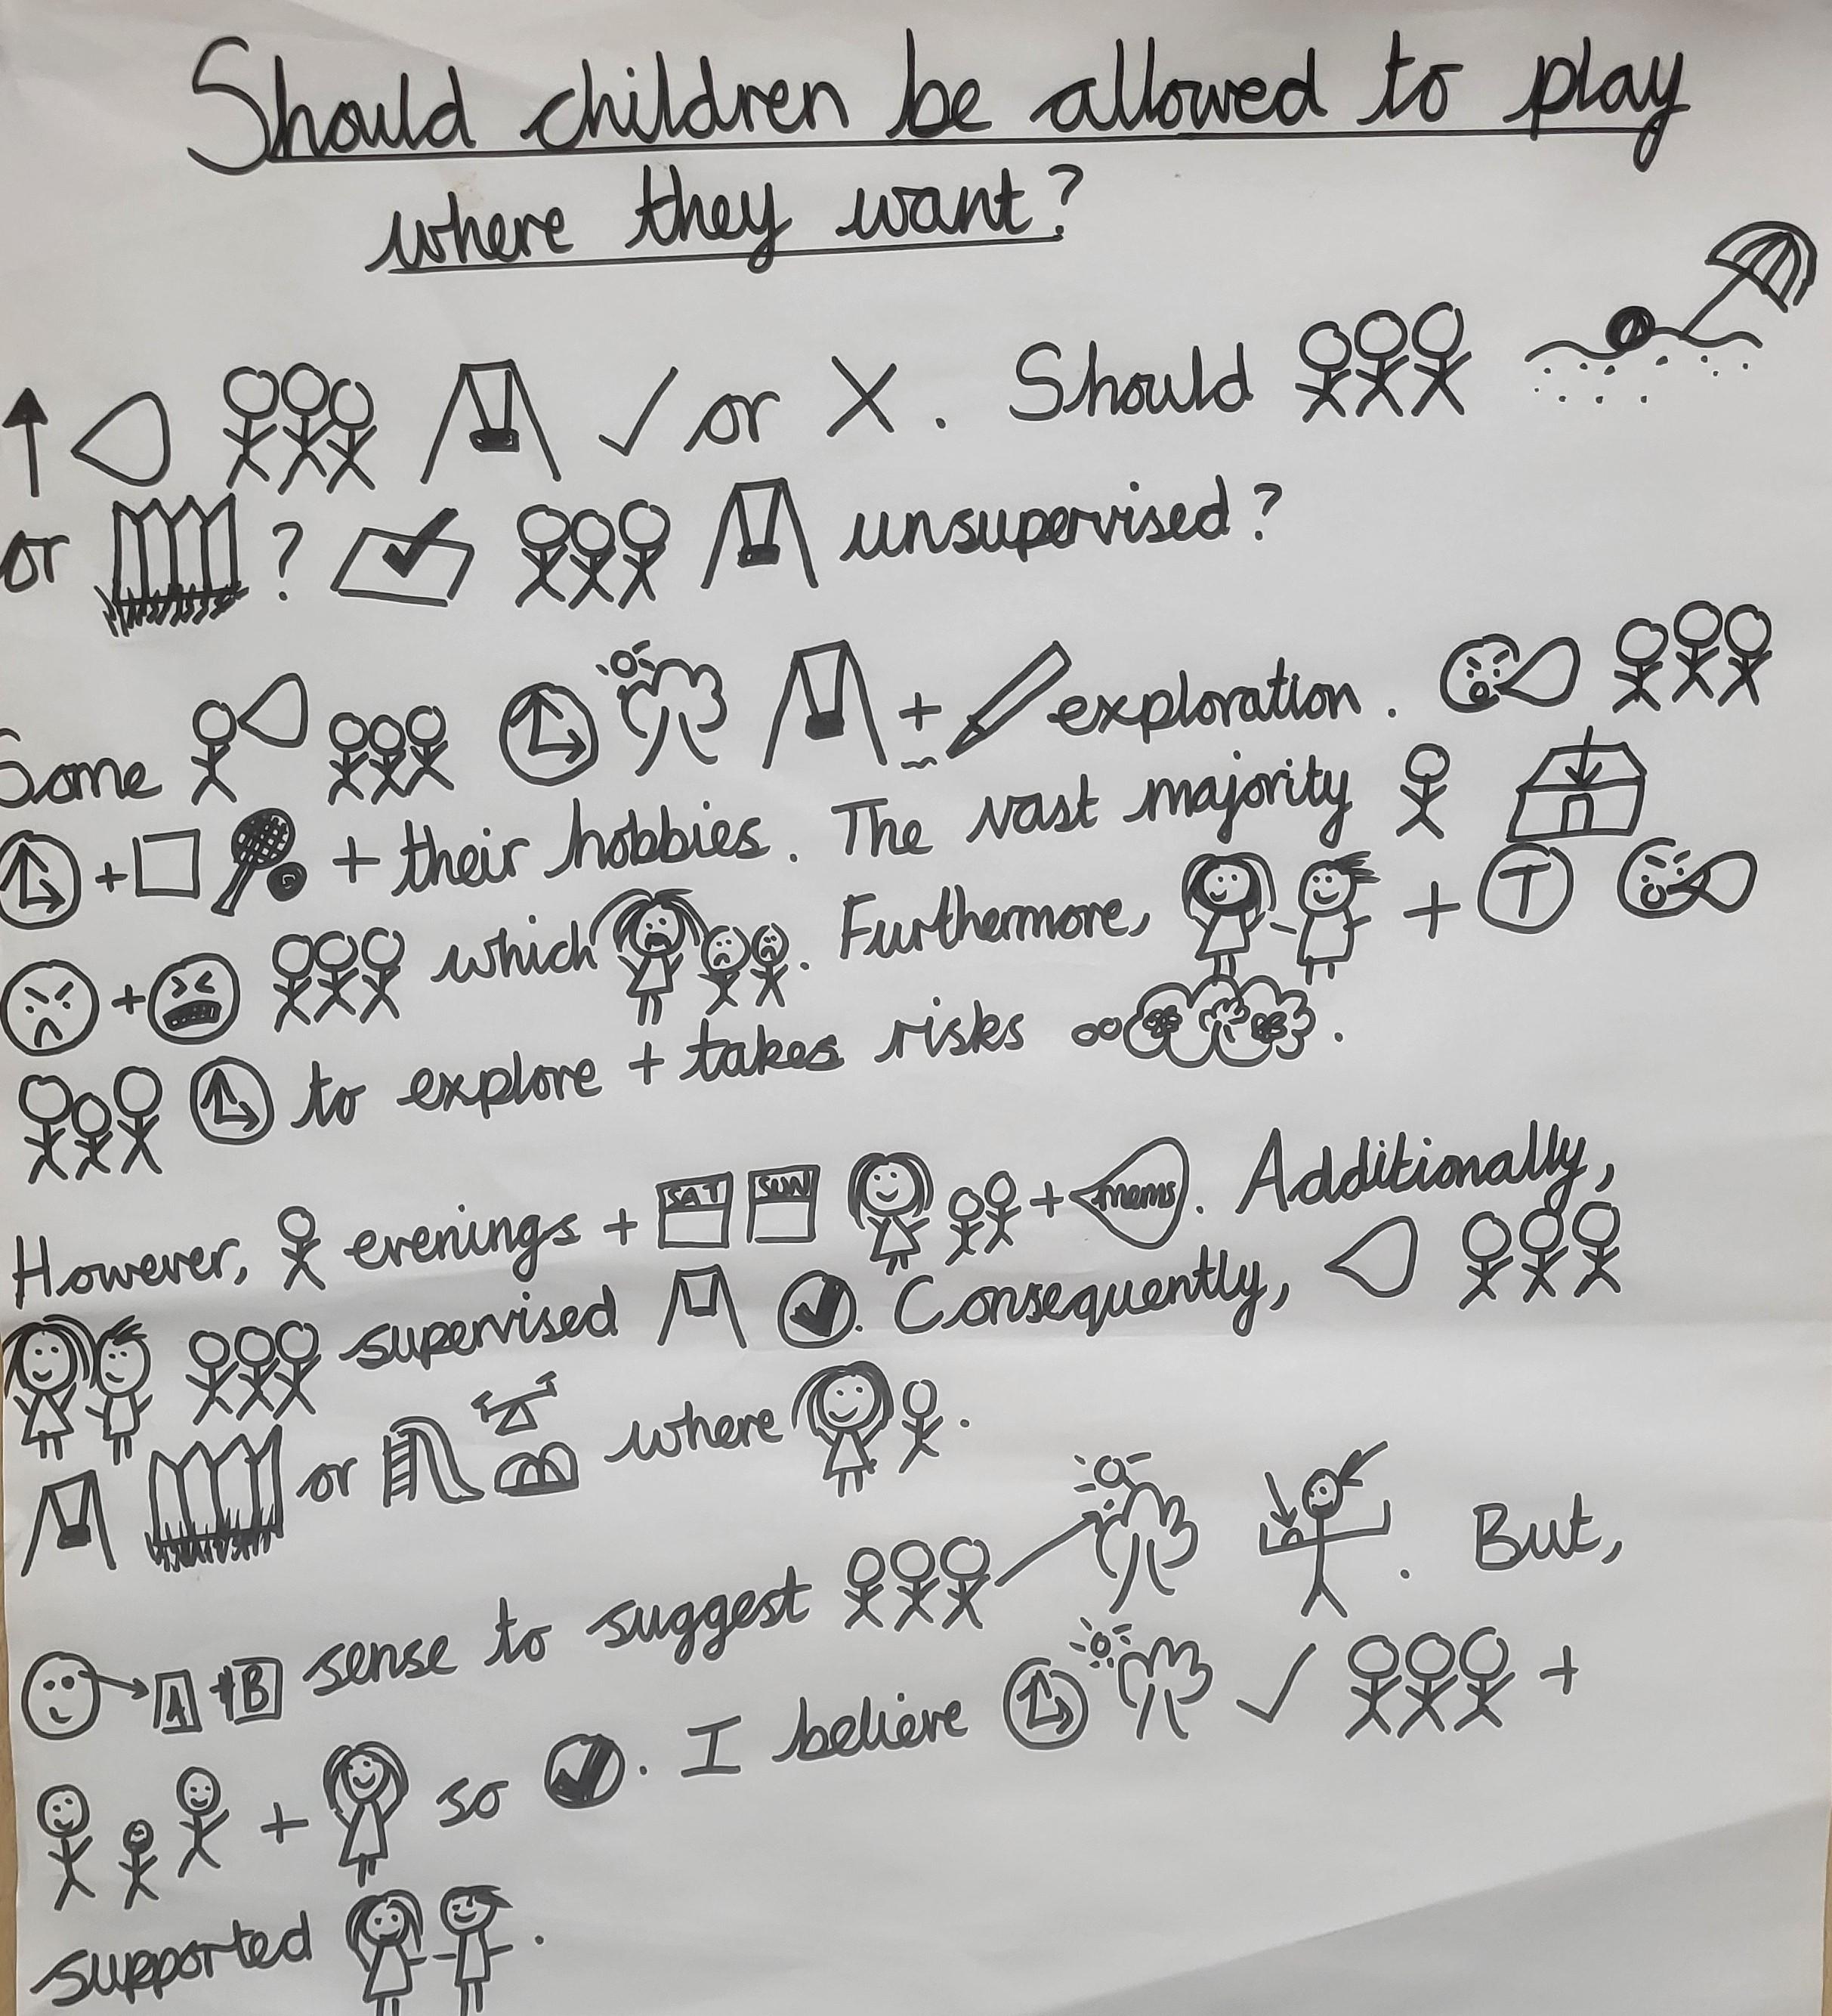 Should children be allowed to play
where they want?
or X. Should
or ? unsupervised?
Some + exploration.
+ + their hobbies. The vast majority
+ which . Furthermore, + T
to explore + takes risks .
However, evenings + SAT SUN + mems. Additionally,
supervised . Consequently,
or where .
A + B sense to suggest . But,
+ so . I believe +
supported .